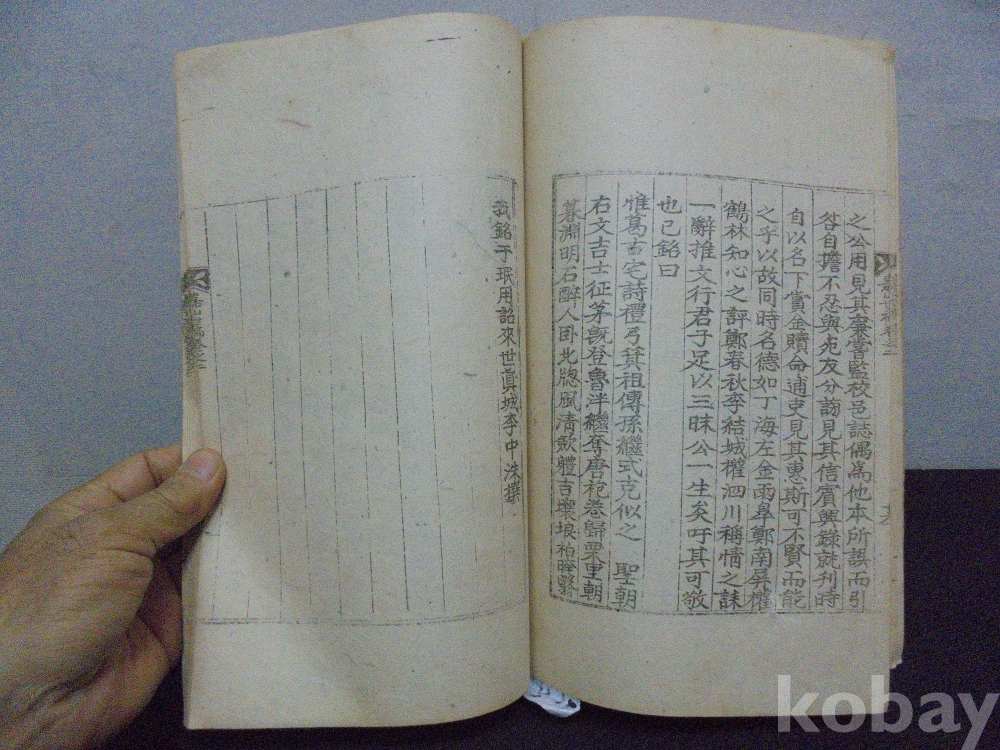 之公用見其廉嘗監校邑誌偶爲他本所誤而引
咎自擔不忍與死友分謗見其信賓興錄就刊時
自以名下賞金贖命逋吏見其惠斯可不賢而能
之乎以故同時名德如丁海左金雨皐鄭南屏權
鶴林知心之評鄭春秋李結城權泗川稱情之誄
一辭推文行君子足以三昧公一生矣吁其可敬
也已銘曰
惟葛古宅詩禮弓箕祖傳孫繼式克似之 聖朝
右文吉士征茅旣登魯泮繼奪唐袍卷歸栗里朝
暮淵明石醉人卧北牕風淸歛體吉壤埌柏晻翳
我銘于珉用詔來世眞城李中洙撰
kobay